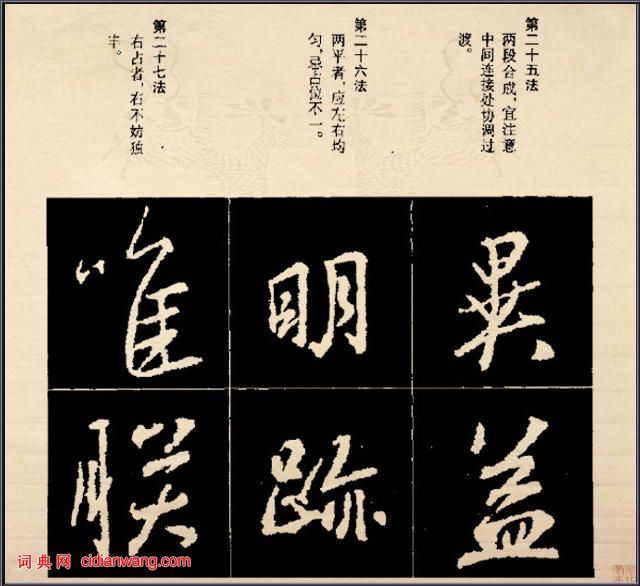 第二十五法
两段合成,宜注意
中间连接处协调过
渡。
第二十六法
两平者,应左右均
匀,忌占位不一。
第二十七法
右占者,右不妨独
丰。
畢
益
明
跡
唯
联
词典网 cidianwang.com